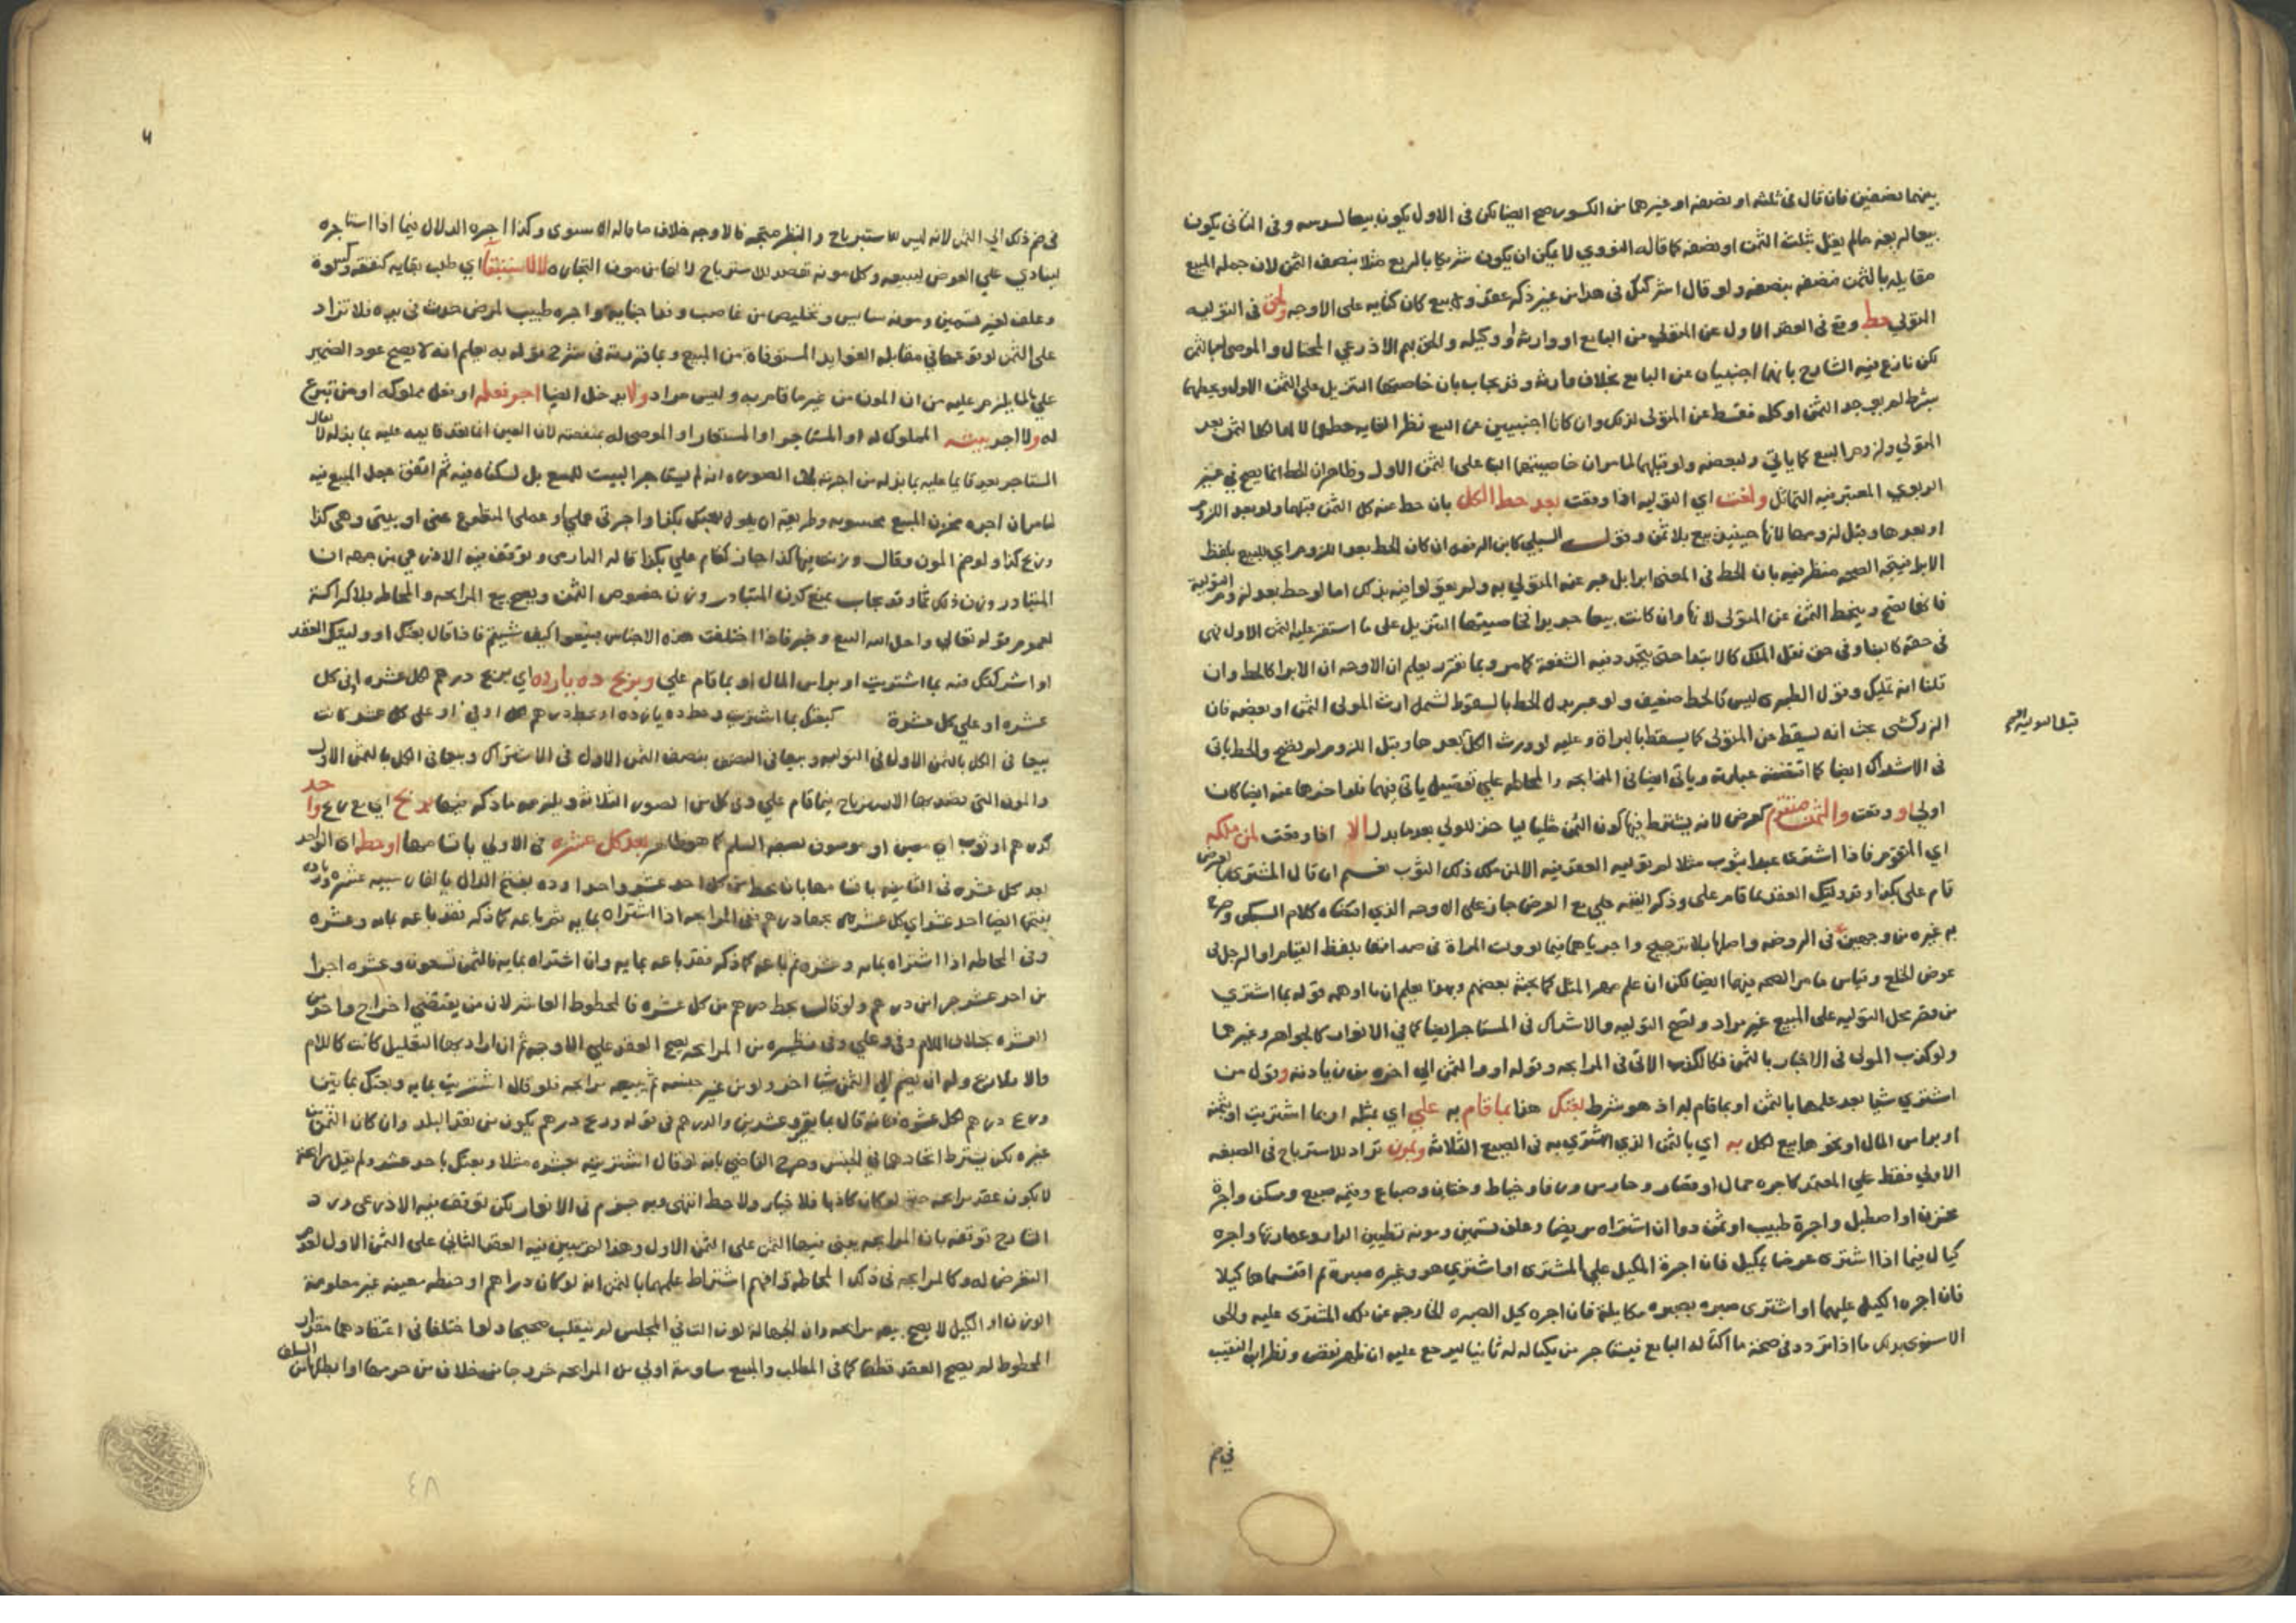 بينهما نصفين فان قال في ثلثه او نصفه او غيرهما من الكسور صح ايضا لكن في الاول يكون بيعا لسدسه وفي الثاني يكون
بيعا لربعه مالم يقل بثلث الثمن او نصفه كما قاله النووي لا يمكن ان يكون شريكا بالربع مثلا بنصف الثمن لان جملة المبيع
مقابلة بالثمن فنصفه بنصفه ولو قال اشركتك في هذا من غير ذكر عقد ولا بيع كان كناية على الاوجه ولحق في التولية
المولي حط وقع في العقد الاول عن المتولي من البايع او وارثه او وكيله والحق بهم الاذرعي المحتال والموصى لهما بالثمن
لكن نازع فيه الشارح بانهما اجنبيان عن البايع بخلاف وارثه وقد يجاب بان خاصتها التنزيل على الثمن الاول
بشرط لم يوجد الثمن او كله فسقط عن المتولي لذلك وان كانا اجنبيين عن البيع نظرا لغايه حطهما
المتولي ولزوم البيع كما ياتي ولبعضه ولو قبلها لما مر ان خاصيتها البنا على الثمن الاول وظاهر ان الحط انما يصح في غير
الربوي المعتبر فيه التماثل ولغت اي التوليه اذا وقعت بعد حط الكل بان حط عنه كل الثمن قبلها ولو بعد اللزوم
او بعدها وقبل لزومها لانها حينئذ بيع بلا ثمن وقول السبكي كابن الرفعه ان كان الحط بعد اللزوم اي للبيع بلفظ
الابرا فيتجه الصحه منظر فيه بان الحط في المعنى ابرا بل عبر عنه المتولي به ولم يعولوا فيه بذلك اما لو حط بعد لزوم التولية
فانها تصح وينحط الثمن عن المتولي لانها وان كانت بيعا جديدا فخاصيتها التنزيل على ما استقر عليه الثمن الاول فهي
في حقه كالبنا وفي حق نقل الملك كالابتدا حتى تتجدد فيه الشفعة كما مر وبما تقرر يعلم ان الاوجه ان الابرا كالحط وان
قلنا انه تمليك وقول الطبري ليس كالحط ضعيف ولو عبر بدل الحط بالسقوط لشمل ارث المولى الثمن او بعضه فان
الزركشي بحث انه يسقط عن المتولى كما يسقط بالبراة وعليه لو ورث الكل بعدها وقبل اللزوم لم تصح والحط ياتي
قبل التوليه
في الاشراك ايضا كما اقتضته عبارته وياتي ايضا في المرابحه والمحاطه على تفصيل ياتي فيهما
اولي او وقعت والثمن متقوم كعرض لانه يشترط فيها كون الثمن مثليا الا اذا وقعت لمن ملكه
اي المتقوم فاذا اشترى عبدا بثوب مثلا لم توليه العقد فيه الا لمن ملك ذلك الثوب نعم ان قال المشتري بالعرض
قام علي بكذا وقد وليتك العقد بما قام علي وذكر القيمه مع العرض جاز على الاوجه الذي اقتضاه كلام السبكي وصرح
به غيره من وجهين في الروضه واصلها بلا ترجيح واجرياهما فيما لو ولت المراة في صداقها بلفظ القيام او الرجل في
عوض الخلع وقياس ما مر الصحه فيهما ايضا لكن ان علم مهر المثل كما بحثه بعضهم وبهذا يعلم ان ما اوهمه قوله بما اشتري
من قصر محل التوليه على المبيع غير مراد وتصح التوليه والاشراك في المستاجر ايضا كما في الانوار كالجواهر وغيرها
ولو كذب المولي في الاخبار بالثمن فكالكذب الاتي في المرابحه وقوله او والثمن الى اخره من زيادته وقول من
اشتري شيا بعد علمهما بالثمن او بما قام به اذ هو شرط بعتك هذا بما قام به علي اي بمثله او بما اشتريت او ثمنه
او براس المال او نحوها بيع لكل به اي بالثمن الذي اشتري به في الصيغ الثلاثه ومون تراد للاسترباح في الصيغه
الاولي فقط على المعتمد كاجره حمال او قصار وحارس ورفا وخياط وختان وصباغ وقيمه صبغ ومسكن واجرة
مخزن او اصطبل واجرة طبيب او ثمن دوا ان اشتراه مريضا وعلف تسمين ومونه تطيين الدار وعمارتها واجره
كيال فيما اذا اشترى عرضا بمكيل فان اجرة المكيل على المشتري او اشترى هو وغيره صبرة ثم اقتسماها كيلا
فان اجره الكيل عليهما او اشترى صبره بصبره مكايلة فان اجره كيل الصبره الخارجه عن ملك المشتري عليه والحق
الاسنوي بذلك ما اذا تردد في صحة ما اكتاله البايع فيستاجر من يكيله له ثانيا ليرجع عليه ان ظهر نقص ونظر ابن النقيب
في ضم
في ضم ذلك الي الثمن لانه ليس للاسترباح والنظر متجه فالاوجه خلاف ما قاله الاسنوي وكذا اجره الدلال فيما اذا استاجره
لينادي على العوض ليبيعه وكل مونه تقصد للاسترباح لانها من مون التجاره لا للاستبقا اي طلب بقايه كنفقه وكسوة
وعلف لغير تسمين ومونه سايس وتخليص من غاصب وفدا جنايه واجره طبيب لمرض حدث في يده فلا تزاد
على الثمن لوقوعها في مقابله الفوايد المستوفاة من المبيع وبما قررته في شرح قوله به يعلم انه لا يصح عود الضمير
على لما يلزم عليه من ان المون من غير ما قام به وليس مراد ولا يدخل ايضا اجر فعله او فعل مملوكه او من تبرع
له ولا اجر بيته المملوك له او المستاجر او المستعار او الموصى له بمنفعته لان العين انما تعد قايمه عليه بما بذله لا يقال
المستاجر بعد قايما عليه بما بذله من اجرته لان الصوره انه لم يستاجر البيت للمبيع بل لسكناه فيه ثم اتفق جعل المبيع فيه
لما مر ان اجره مخزن المبيع محسوبه وطريقته ان يقول بعتك بكذا واجرتي عملي او عمل المتطوع عني او بيتي وهي كذا
وربح كذا ولو ضم المون وقال وزنت فيها كذا جاز كقام علي بكذا قاله الدارمي وتوقف فيه الاذرعي من جهه ان
المتبادر وزن ذلك ثمنا وقد يجاب بمنع كون المتبادر وزن خصوص الثمن ويصح بيع المرابحه والمحاطه بلا كراهة
لعموم قوله تعالى واحل الله البيع وخبر فاذا اختلفت هذه الاجناس فبيعوا كيف شيتم فاذا قال بعتك او وليتك العقد
او اشركتك فيه بما اشتريت او براس المال او بما قام علي وبربح ده يازده اي بربح درهم لكل عشره او في كل
عشره او علي كل عشرة كبعتك بما اشتريت وحط ده يازده او بحط درهم لكل او في او على كل عشره كانت
بيعا في الكل بالثمن الاول في التوليه وبيعا في النصف بنصف الثمن الاول في الاشراك وبيعا في الكل بالثمن الاول
والمون التي يقصد بها الاسترباح فيما قام علي وفي كل من الصور الثلاثه ويلزمه ما ذكر فيها بربح اي مع ربح واحد
كدرهم او ثوب اي معين او موصوف بصفه السلم كما هو ظاهر بعد كل عشره في الاولي باقسامها او حط اي الواحد
بعد كل عشره في الثانيه باقسامها بان يحط من كل احد عشر واحدا وده بفتح الدال بالفارسيه عشره ويازده
بمعنى ايضا احد عشر اي كل عشره ربحها درهم ففي المرابحه اذا اشتراه بمايه ثم باعه كما ذكر فقد باعه بمايه وعشره
وفي المحاطه اذا اشتراه بمايه وعشره ثم باعه كما ذكر فقد باعه بمايه وان اشتراه بمايه فالثمن تسعون وعشره اجزا
من احد عشر جزا من درهم ولو قال بحط درهم من كل عشره فالمحطوط العاشر لان من يقتضي اخراج واحد من
العشره بخلاف اللام وفي وعلي وفي نظيره من المرابحه يصح العقد على الاوجه ثم ان اراد بها التعليل كانت كاللام
والا فلا ربح وله ان يضم الى الثمن شيا اخر ولو من غير جنسه ثم يبيعه مرابحه فلو قال اشتريت بمايه وبعتك بمايتين
وربح درهم لكل عشره فكانه قال بمايه وعشرين والدرهم في قوله وربح درهم يكون من نقد البلد وان كان الثمن من
غيره لكن يشترط اتحادهما في الجنس وصرح القاضي بانه لو قال اشتريته بعشره مثلا وبعتك باحد عشر ولم يقل مرابحة
لا يكون عقد مرابحه حتى لو كان كاذبا فلا خيار ولا حط انتهى وبه جزم في الانوار لكن توقف فيه الاذرعي ورد
الشارح توقفه بان المرابحه يبنى فيها الثمن على الثمن الاول وهذا لم يبين فيه العقد الثاني على الثمن الاول لعدم
التعرض له وكالمرابحه في ذلك المحاطه وافهم اشتراط علمهما بالثمن انه لو كان دراهم او حنطه معينه غير معلومة
الوزن او الكيل لا يصح بيعه مرابحه وان الجهالة لو زالت في المجلس لم ينقلب صحيحا ولو اختلفا في اعتقادهما مقدار
المحطوط لم يصح العقد قطعا كما في المطلب والبيع مساومة اولي من المرابحه خروجا من خلاف من حرمها او ابطلها من السلف
٤٨